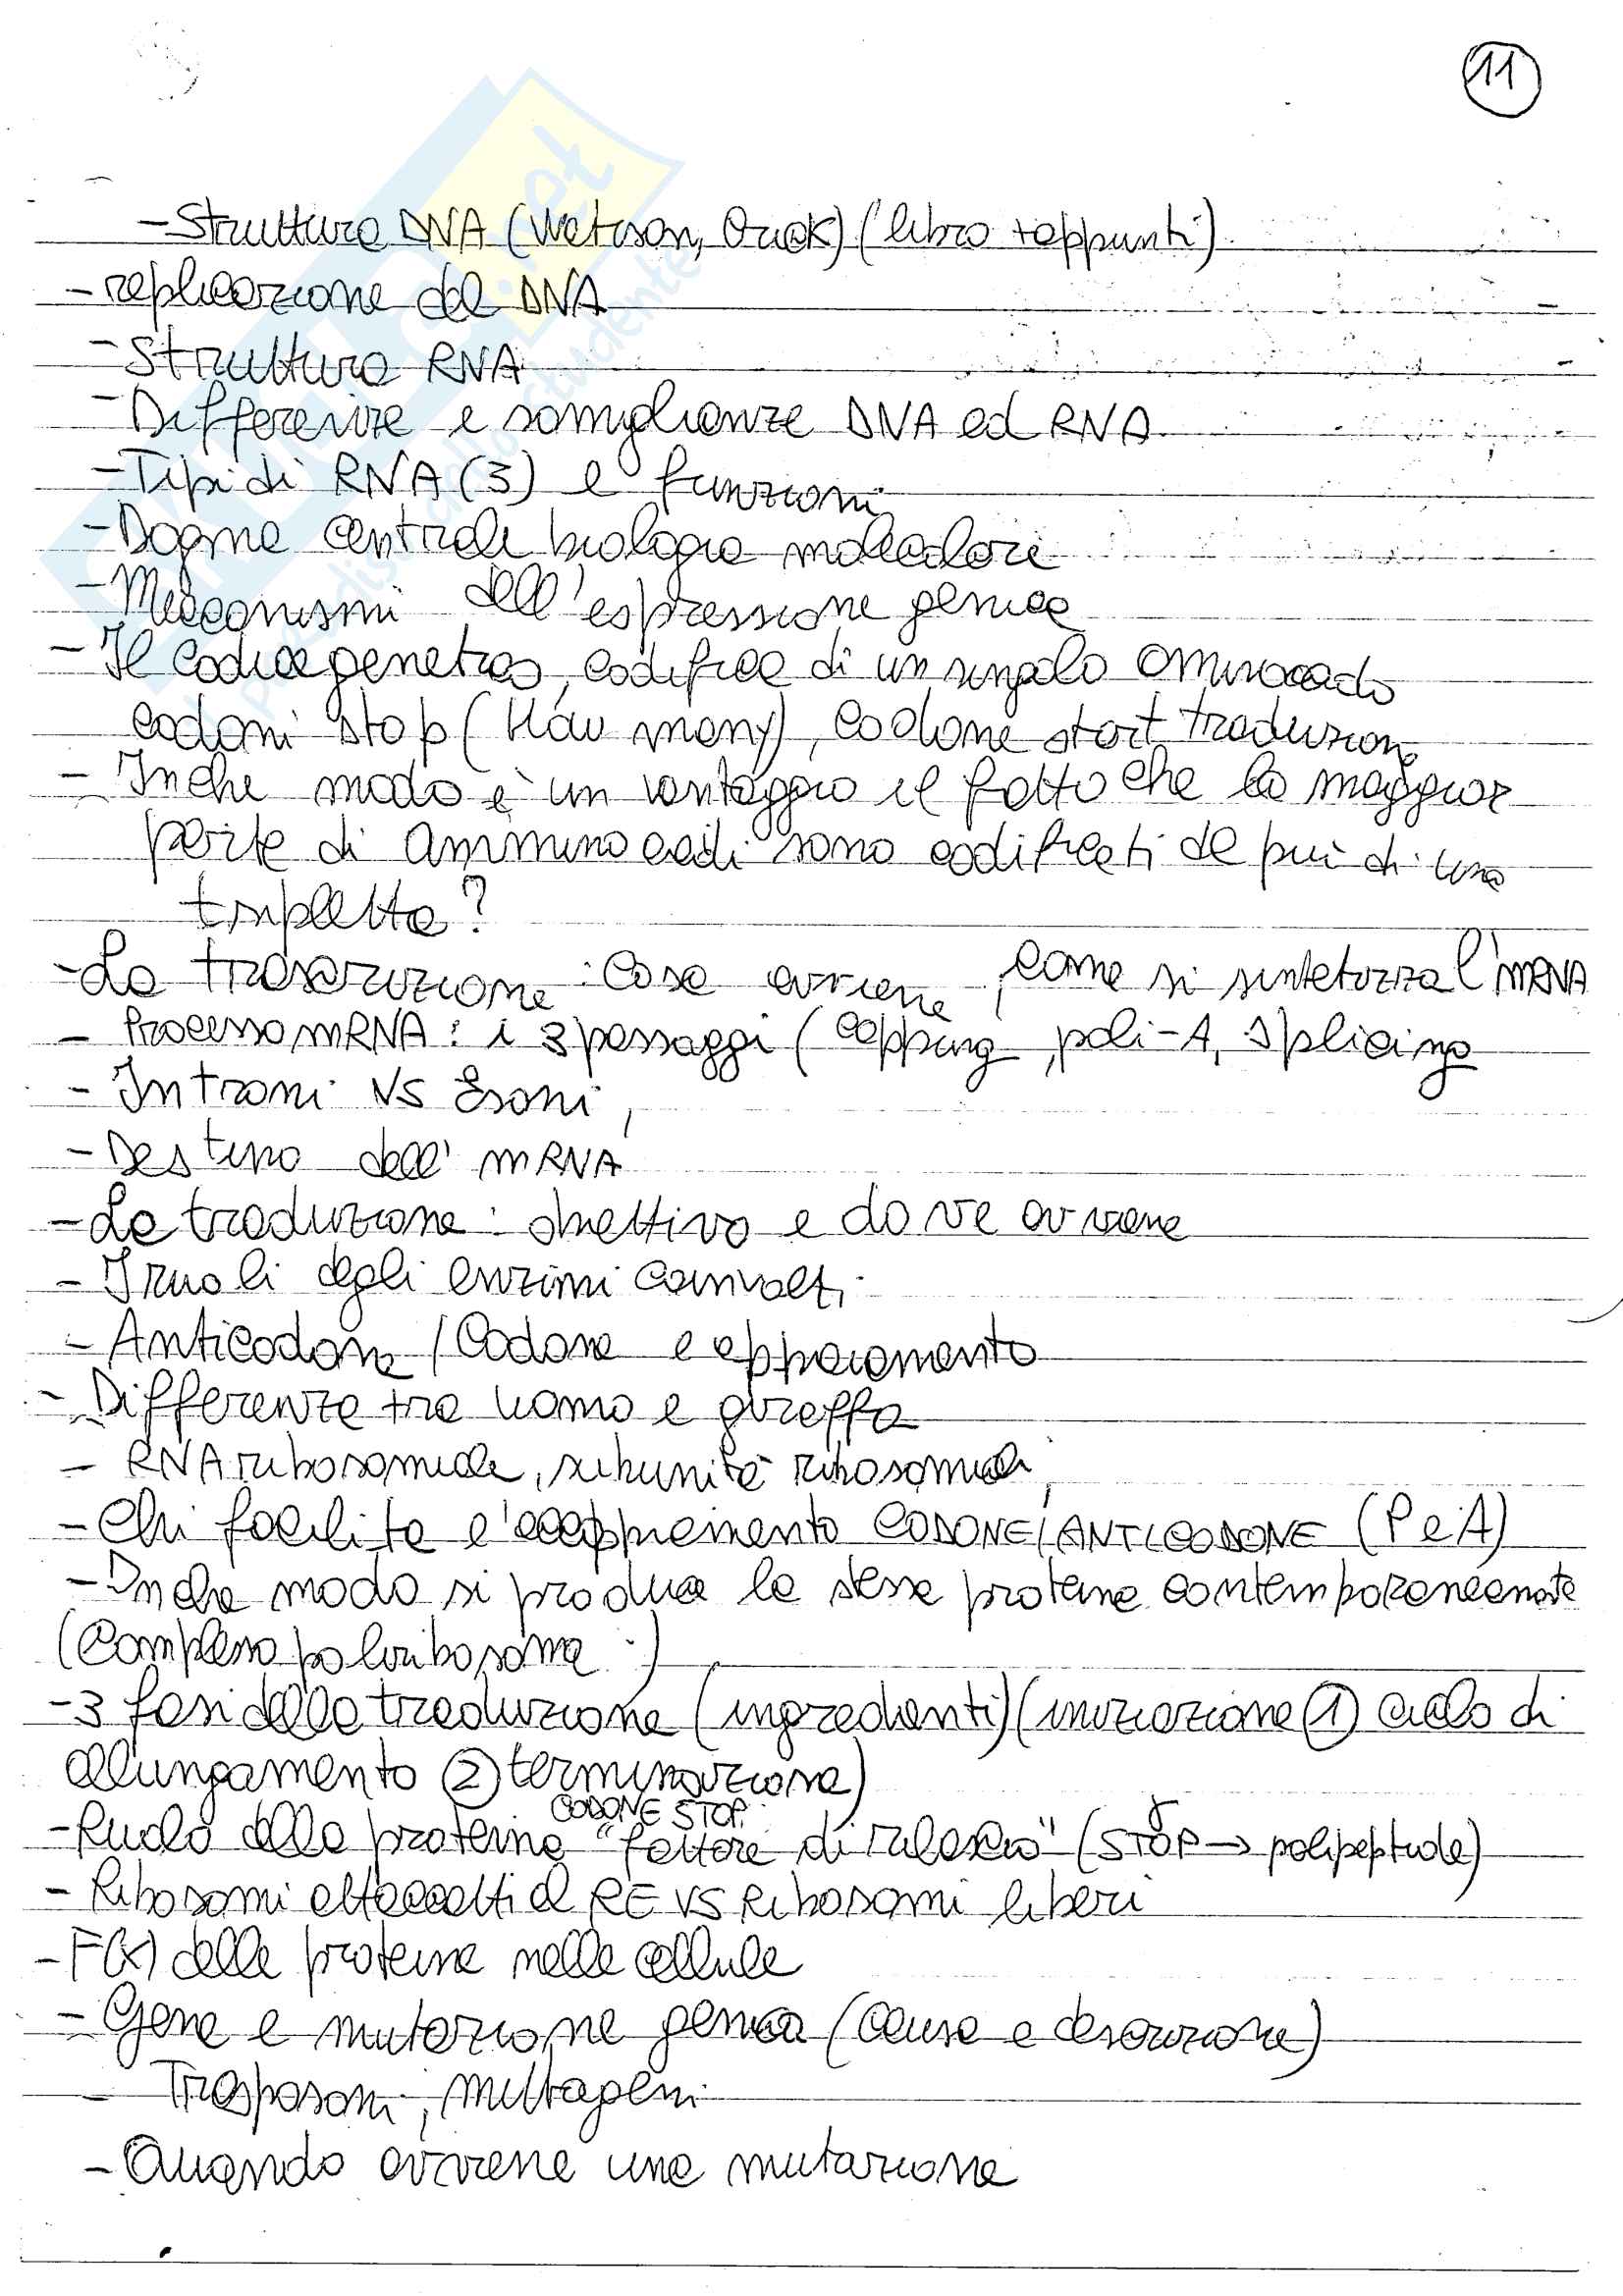 11
- Struttura DNA (Watson, Crick) (libro + appunti)
- replicazione del DNA
- Struttura RNA
- Differenze e somiglianze DNA ed RNA
- Tipi di RNA (3) e funzioni
- Dogma centrale biologia molecolare
- Meccanismi dell'espressione genica
- Il codice genetico, codifica di un singolo aminoacido
codoni stop (How many), codone start traduzione
- In che modo è un vantaggio il fatto che la maggior
parte di amminoacidi sono codificati da più di una
tripletta?
- La trascrizione: cosa avviene, come si sintetizza l'mRNA
- Processo mRNA: i 3 passaggi (capping, poli-A, Splicing
- Introni VS Esoni,
- Destino dell' mRNA
- La traduzione: obiettivo e dove avviene
- I ruoli degli enzimi coinvolti
- Anticodone / Codone e appaiamento
- Differenze tra uomo e giraffa
- RNA ribosomiale, subunità ribosomiali,
- Chi facilita l'accoppiamento CODONE/ANTICODONE (P e A)
- In che modo si produce la stessa proteina contemporaneamente
(Complesso poliribosoma)
- 3 fasi della traduzione (ingredienti) (iniziazione ① ciclo di
allungamento ② terminazione)
CODONE STOP
- Ruolo della proteina "fattore di rilascio" (STOP → polipeptide)
- Ribosomi attaccati al RE VS Ribosomi liberi
- F(x) delle proteine nelle cellule
- Gene e mutazione genica (causa e descrizione)
- Trasposoni, multageni
- Quando avviene una mutazione